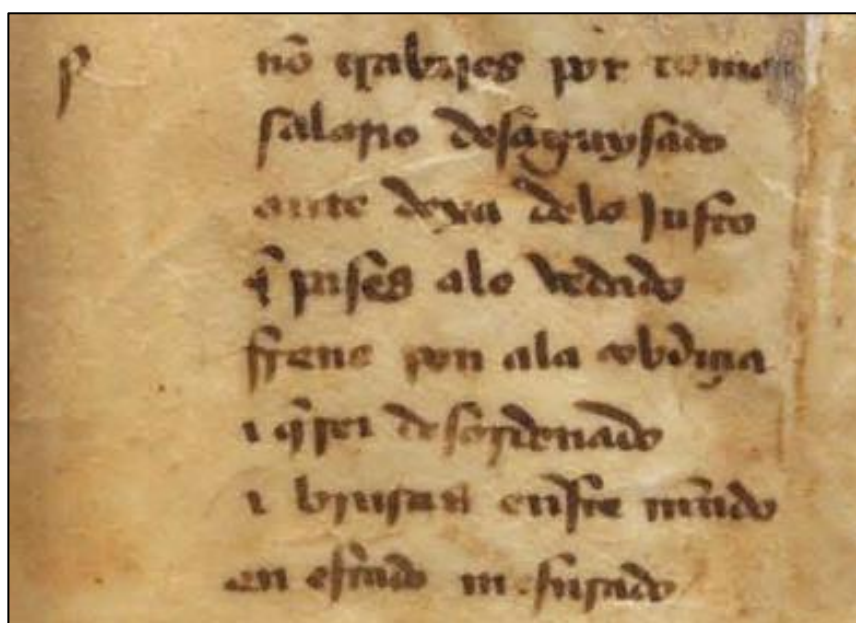 nō trabajes por tomar
salario desaguysado
ante dexa delo justo
q̄ pases alo vedado
freno pon ala cobdiçia
i q̄rer desordenado
i biujras eneste mūdo
en estado mesurado